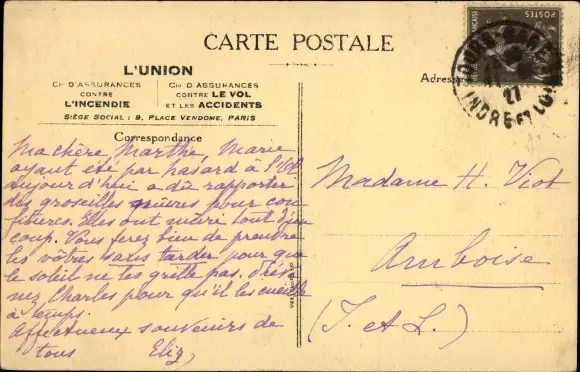 CARTE POSTALE
L'UNION
Cie D'ASSURANCES
CONTRE
L'INCENDIE
Cie D'ASSURANCES
CONTRE LE VOL
ET LES ACCIDENTS
SIÈGE SOCIAL : 9, PLACE VENDOME, PARIS
Correspondance
Ma chère Marthe, Marie
ayant été par hasard à
aujourd'hui a dû rapporter
des groseilles mûres pour con
fitures. Elles ont mûri tout d'un
coup. Vous ferez bien de prendre
les vôtres sans tarder pour que
le soleil ne les grille pas.
nez Charles pour qu'il les cueille
à temps.
Affectueux souvenirs de
tous Eliz,
Adresse
POSTES
27
INDRE ET LOIRE
Madame H. Viot
Amboise
(I. et L.)